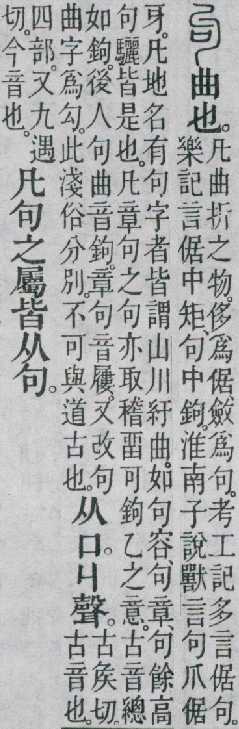 句曲也。凡曲折之物。侈爲倨。斂爲句。考工記多言倨句。
樂記言倨中矩。句中鉤。淮南子說獸言句爪倨
牙。凡地名有句字者皆謂山川紆曲。如句容、句章、句餘、高
句驪皆是也。凡章句之句亦取稽畱可鉤乙之意。古音總
如鉤。後人句曲音鉤。章句音屨。又改句
曲字爲勾。此淺俗分別。不可與道古也。
从口。丩聲。古矦切。
古音也。
四部。又九遇
切。今音也。
凡句之屬皆从句。